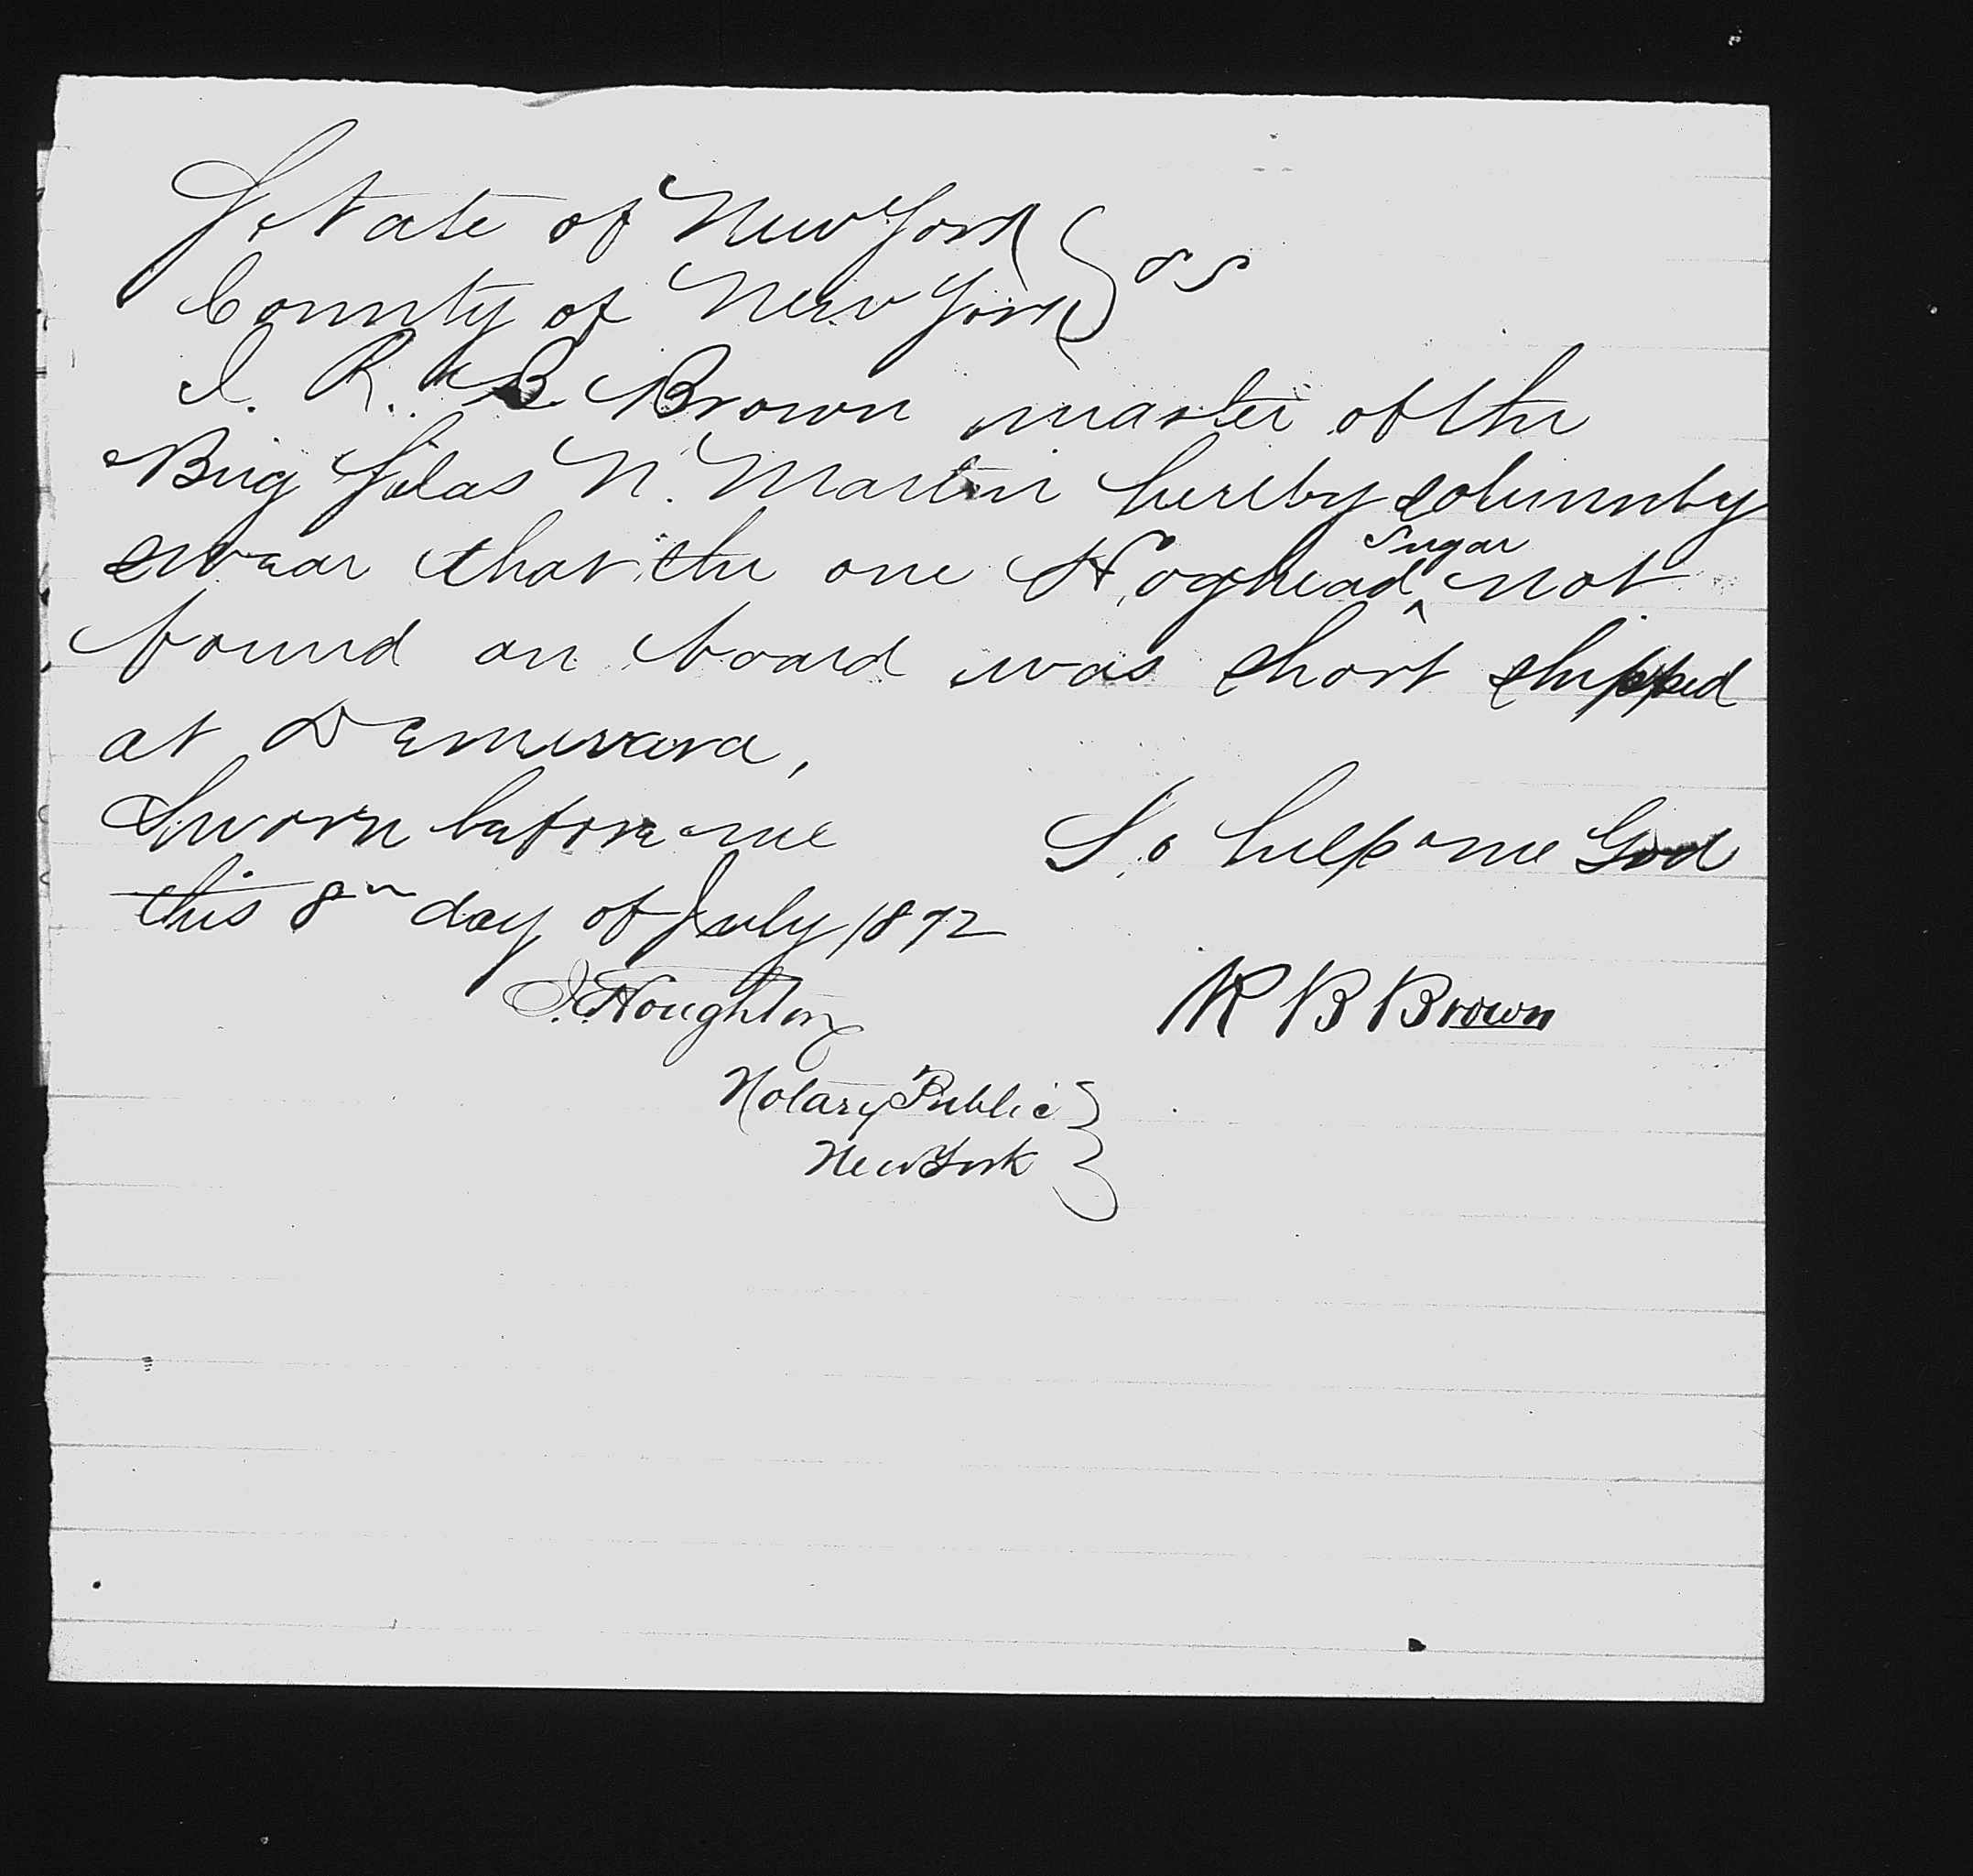 State of New York } ss
County of New York }
I. R. B. Brown master of the
Brig Silas N. Martin hereby solemnly
swear that the one Hoghead ^Sugar not
found on board was short shipped
at Demerara,
Sworn before me So help me God
this 8th day of July 1872
J. Houghton R B Brown
Notary Public }
New York }